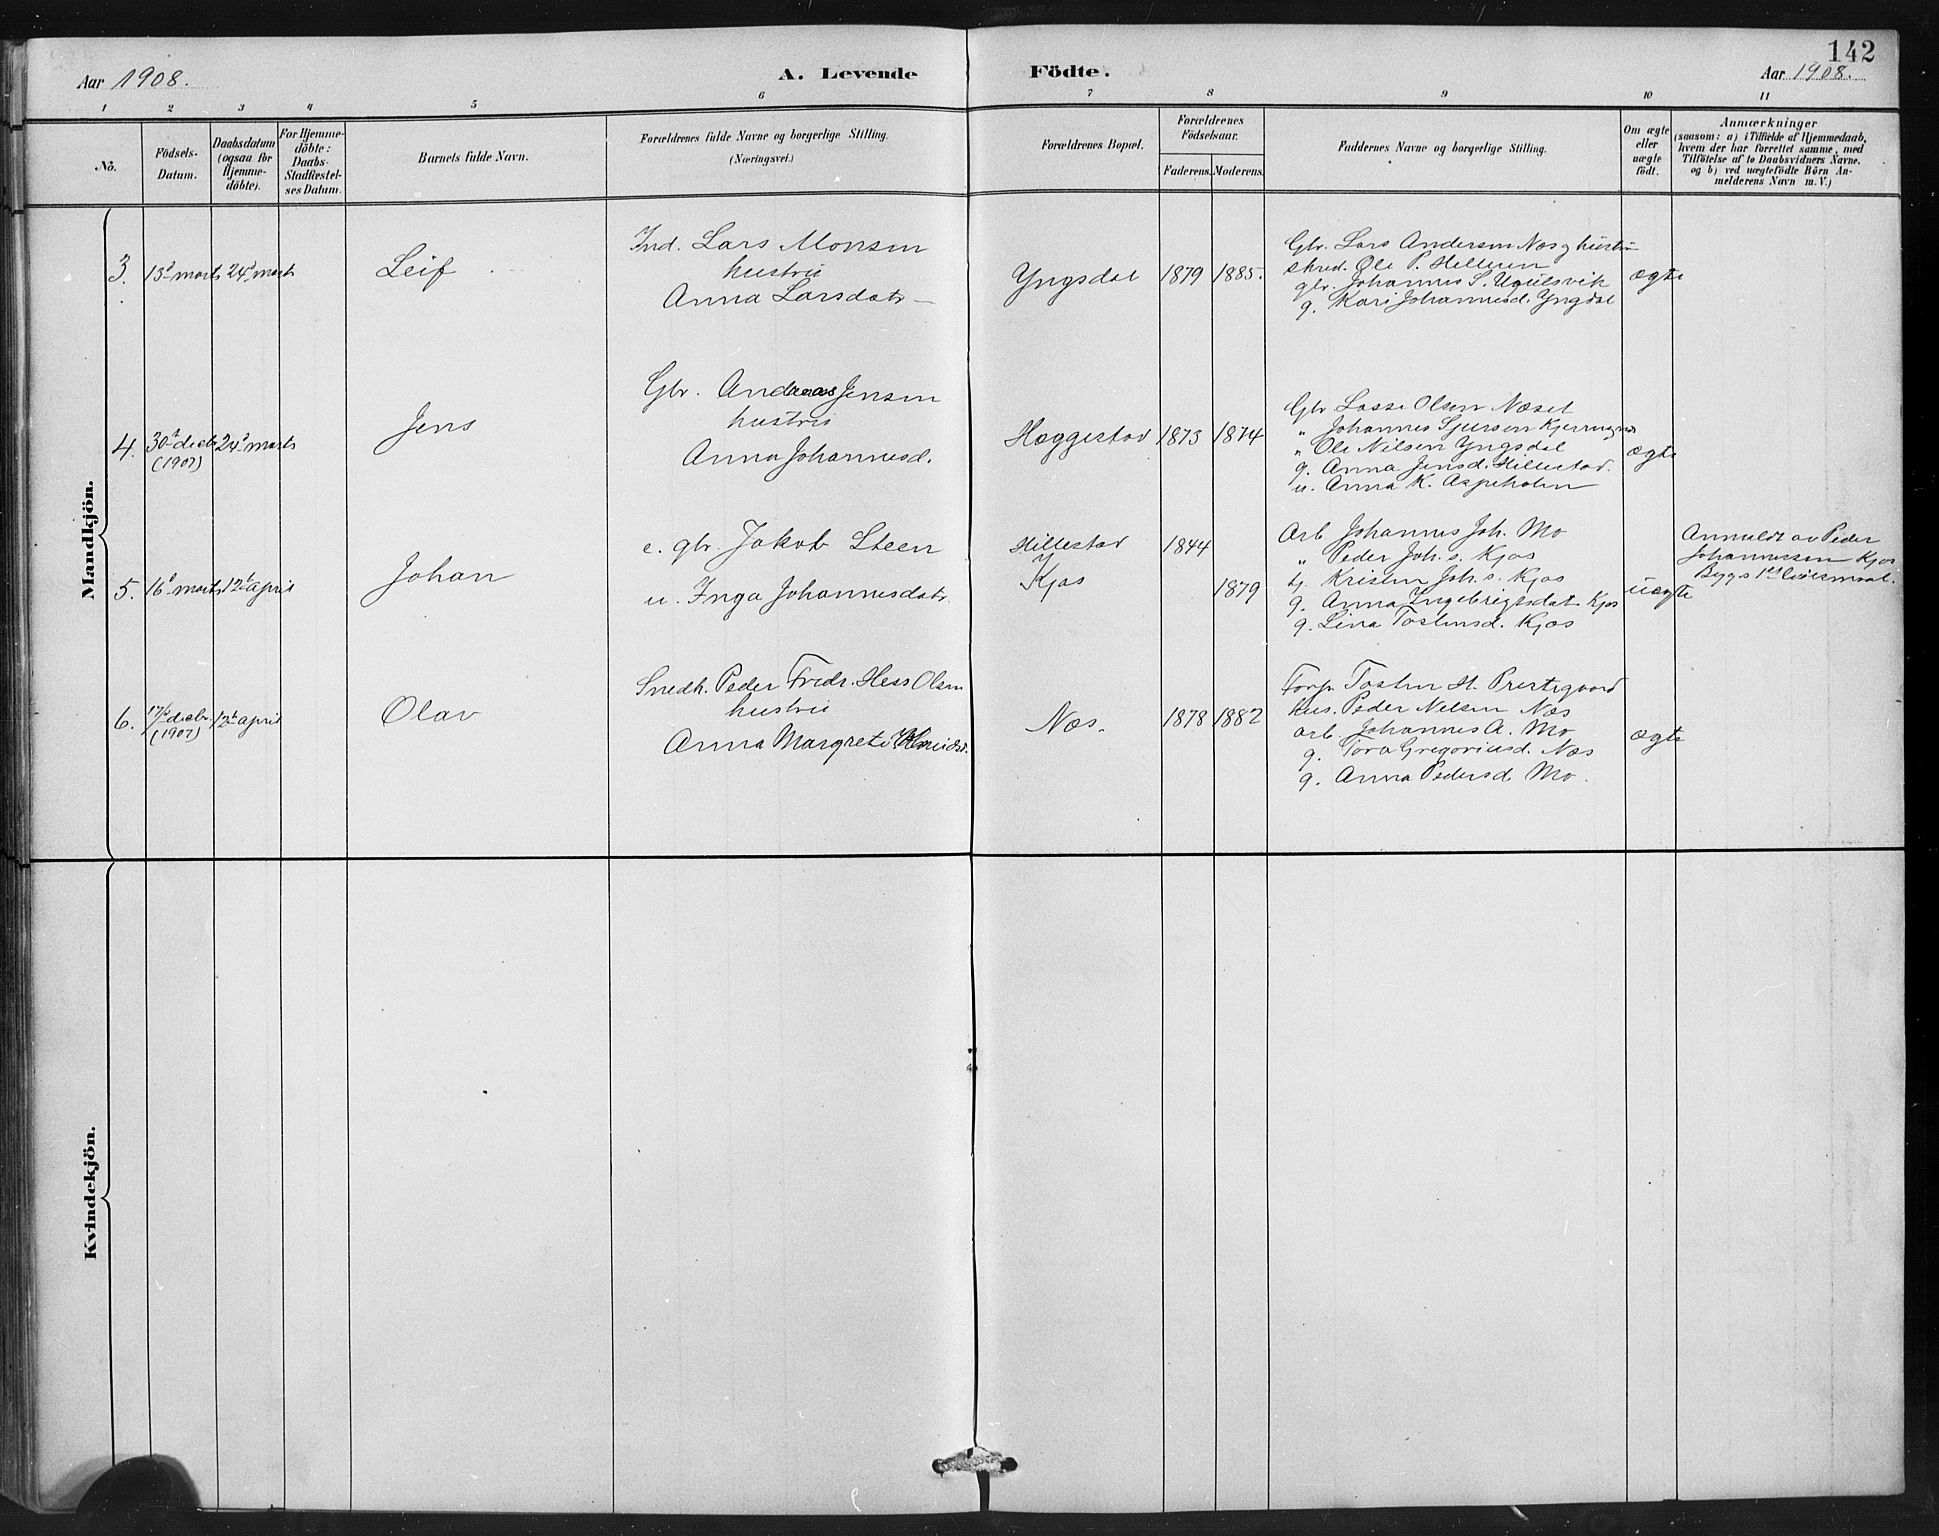 142
Aar 1908.
A. Levende Födte.
Aar 1908.
1 2 3 4 5 6 7 8 9 10 11
No.
Födsels-
Datum.
Daabsdatum
(ogsaa for
Hjemme-
döbte).
For Hjemme-
döbte:
Daabs-
Stadfæstel-
ses Datum.
Barnets fulde Navn.
Forældrenes fulde Navne og borgerlige Stilling.
(Næringsvei.)
Forældrenes Bopæl.
Forældrenes
Födselsaar.
Faderens. Moderens.
Faddernes Navne og borgerlige Stilling.
Om ægte
eller
uægte
födt.
Anmærkninger
(saasom: a) i Tilfælde af Hjemmedaab,
hvem der har forrettet samme, med
Tilföielse af to Daabsvidners Navne.
og b) ved uægtefödte Börn An-
melderens Navn m. V.)
Mandkjön.
3. 13de marts 24de marts
Leif
Ind. Lars Monsen
hustru
Anna Larsdatr
Yngsdal 1879 1885.
Gbr. Lars Andersen Næs og hustru
skred. Ole P. Helleren
gbr. Johannes S.
g. Kari Johannesd. Yngsdal
ægte
4. 30te decbr (1907) 24de marts
Jens
Gbr. Andreas Jensen
hustru
Anna Johannesd.
Hæggestad 1873 1874
Gbr Lasse Olsen Næset
" Johannes Sjursen
" Ole Nilsen Yngsdal
g. Anna Jensd. Hillestad.
u. Anna K. Aspeholen
ægte
5. 16de marts 12te april
Johan
e. gbr. Jakob Steen
u. Inga Johannesdatr.
Hillestad 1844
Kjos 1879
Arb Johannes Joh. Mo
" Peder Joh. s. Kjos
tj. Kristen Joh. s. Kjos
g. Anna Ingebrigtsdat Kjos
g. Lina Tostensd. Kjos
uægte
Anmeldt av Peder
Johannessen Kjos
Begges 1ste leiermaal.
6. 17de decbr. (1907) 12te april
Olav
Snedk. Peder Fredr. Hess Olsen
hustru
Anna Margrete
Næs. 1878 1882
Forp. Tosten H. Prestegaard
hus. Peder Nelsen Næs
arb. Johannes A. Mo
g. Tora Gregoriusd. Næs
g. Anna Pedersd. Mo.
ægte
Kvindekjön.